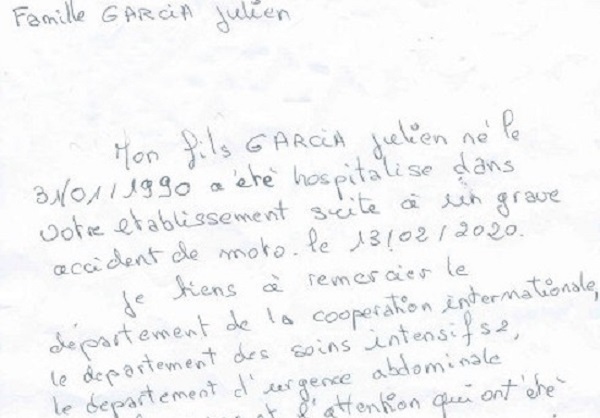 Famille GARCIA Julien
Mon fils GARCIA Julien né le
31/01/1990 a été hospitalise dans
votre etablissement suite à un grave
accident de moto. le 13/02/2020.
Je tiens à remercier le
département de la cooperation internationale,
le departement des soins intensifs 2,
le departement d'urgence abdominale
et l'attention qui ont été